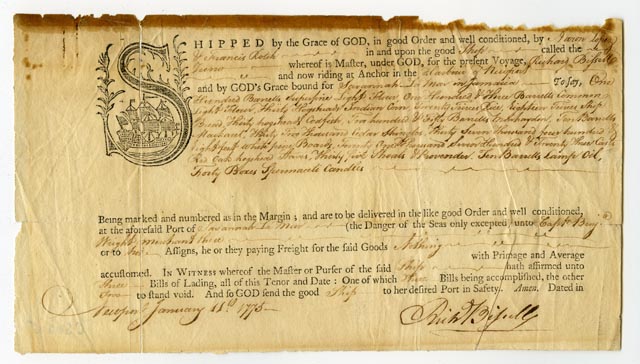 SHIPPED by the Grace of GOD, in good Order and well conditioned, by Aaron Lopez
& Francis Rotch in and upon the good Ship called the
whereof is Master, under GOD, for the present Voyage, Richard Bissell
and now riding at Anchor in the Harbour of Newport
and by GOD's Grace bound for Savannah La Mar in Jamaica To say, One
Hundred Barrells Superfine Flour One Hundred & Three Barrells Common
Hogsheads Indian Corn Seventy Tierces Rice, Eighteen Tierces Ship
Bread Thirty hogsheads Codfish, Two hundred & Fifty Barrells Menhayden, Ten Barrells
Mackarel, Thirty Two thousand Cedar Shingles, Thirty Seven thousand four hundred
& Eight feet white pine Boards, Twenty One thousand Seven Hundred & Twenty three
Red Oak hogshead Staves, Thirty five Shoats & Provender, Ten Barrells Lamp Oil,
Forty Boxes Spermaceti Candles
Being marked and numbered as in the Margin; and are to be delivered in the like good Order and well conditioned,
at the aforesaid Port of Savannah La Mar (the Danger of the Seas only excepted) unto Capt. Benj
Wright merchant there
or to his Assigns, he or they paying Freight for the said Goods Nothing
with Primage and Average
accustomed. In WITNESS whereof the Master or Purser of the said Ship hath affirmed unto
three Bills of Lading, all of this Tenor and Date: One of which three Bills being accomplished, the other
two to stand void. And so GOD send the good Ship to her desired Port in Safety. Amen. Dated in
Newport January 11th 1775
Rich'd Bissell